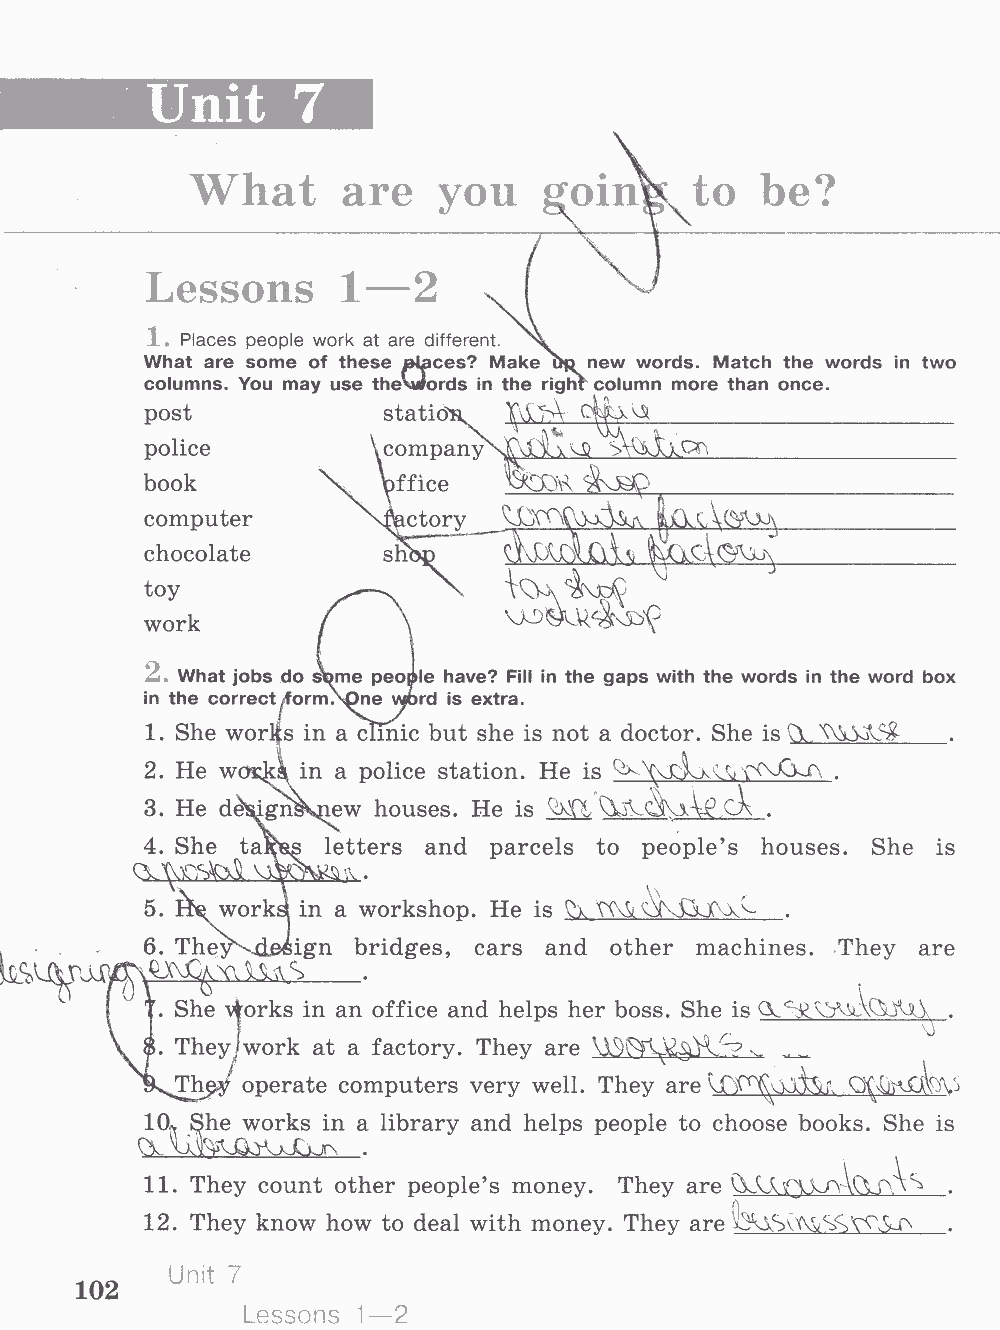 Unit 7
What are you going to be?
Lessons 1—2
1. Places people work at are different.
What are some of these places? Make up new words. Match the words in two
columns. You may use the words in the right column more than once.
post station post office
police company police station
book office book shop
computer factory computer factory
chocolate shop chocolate factory
toy toy shop
work workshop
2. What jobs do some people have? Fill in the gaps with the words in the word box
in the correct form. One word is extra.
1. She works in a clinic but she is not a doctor. She is a nurse.
2. He works in a police station. He is a policeman.
3. He designs new houses. He is an architect.
4. She takes letters and parcels to people's houses. She is
a postal worker.
5. He works in a workshop. He is a mechanic.
6. They design bridges, cars and other machines. They are
designing engineers.
7. She works in an office and helps her boss. She is a secretary.
8. They work at a factory. They are workers.
9. They operate computers very well. They are computer operators
10. She works in a library and helps people to choose books. She is
a librarian.
11. They count other people's money. They are accountants.
12. They know how to deal with money. They are businessmen.
102
Unit 7
Lessons 1—2